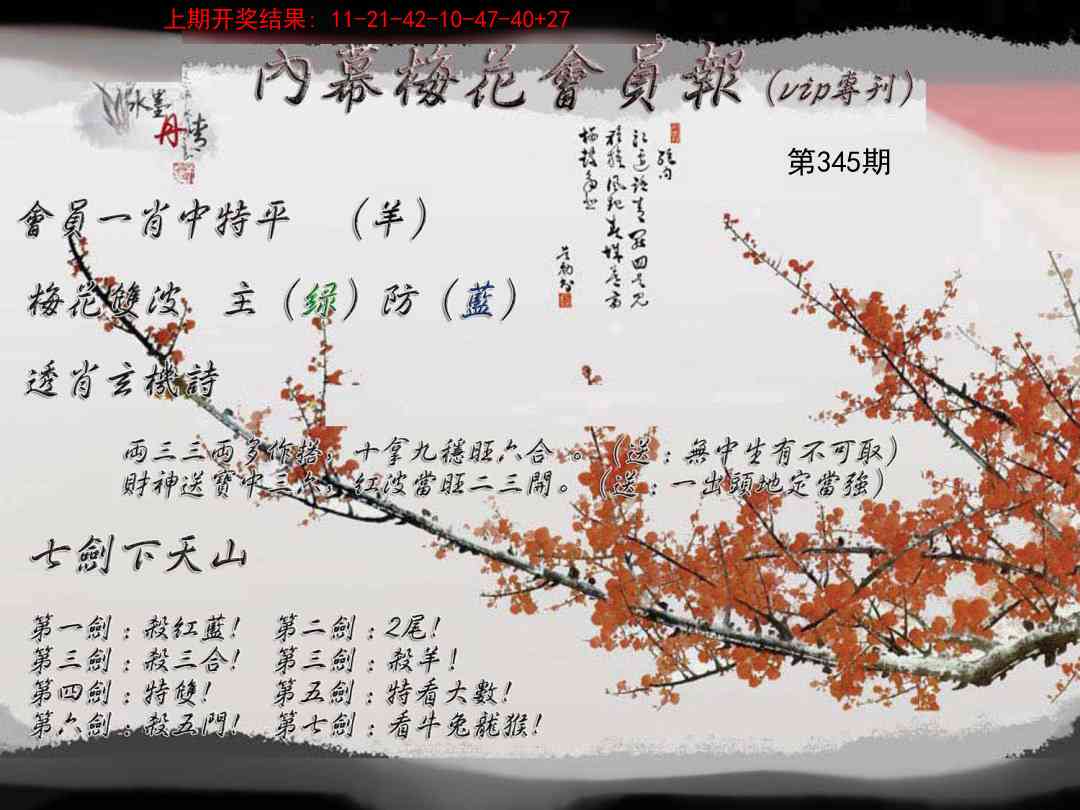 上期开奖结果: 11-21-42-10-47-40+27
內幕梅花會員報(vip專刊)
水墨
丹青
第345期
會員一肖中特平 (羊)
梅花雙波 主(绿)防(藍)
透肖玄機詩
兩三三兩多作搭,十拿九穩旺六合。(送:無中生有不可取)
財神送寶中三六,紅波當旺二三開。(送:一出頭地定當強)
七劍下天山
第一劍:殺紅藍! 第二劍:2尾!
第三劍:殺三合! 第三劍:殺羊!
第四劍:特雙! 第五劍:特看大數!
第六劍:殺五門! 第七劍:看牛兔龍猴!